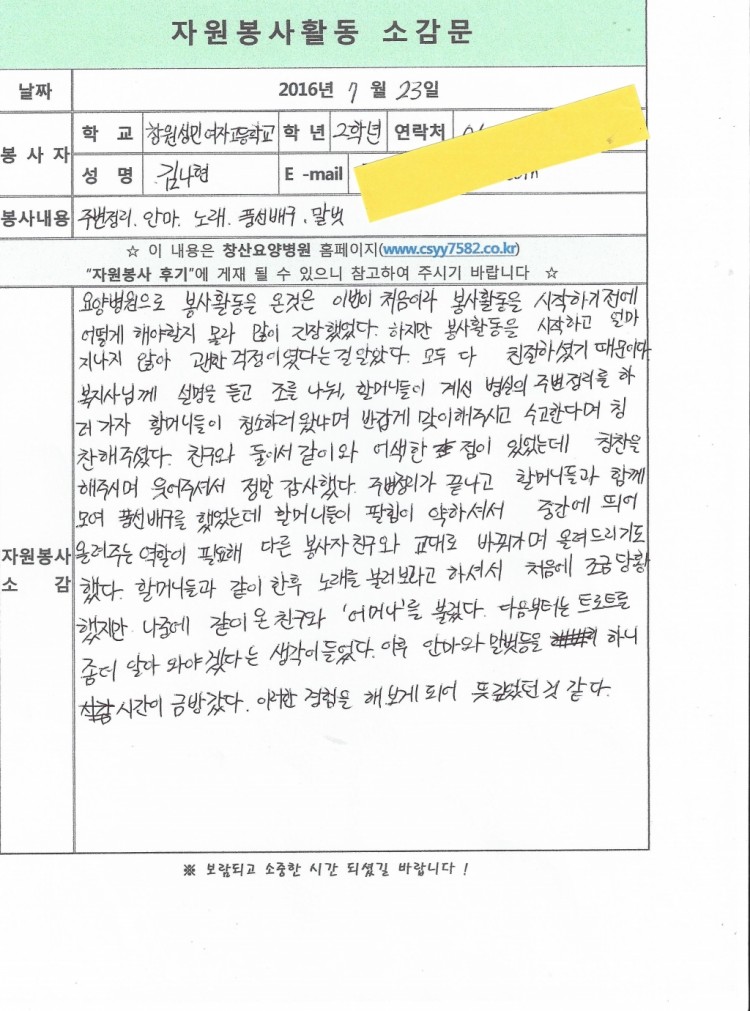 자원봉사활동 소감문
날짜 2016년 7 월 23일
봉사자 학 교 창원성민여자고등학교 학 년 2학년 연락처
성 명 김나현 E-mail
봉사내용 주변정리. 안마. 노래. 풍선배구. 말벗
☆ 이 내용은 창산요양병원 홈페이지(www.csyy7582.co.kr)
"자원봉사 후기"에 게재 될 수 있으니 참고하여 주시기 바랍니다 ☆
자원봉사 소 감
요양병원으로 봉사활동을 온것은 이번이 처음이라 봉사활동을 시작하기전에
어떻게 해야할지 몰라 많이 긴장했었다. 하지만 봉사활동을 시작하고 얼마
지나지 않아 괜한 걱정이였다는걸 알았다. 모두 다 친절하셨기 때문이다
복지사님께 설명을 듣고 조를 나눠, 할머니들이 계신 병실의 주변정리를 하
러가자 할머니들이 청소하러 왔냐며 반갑게 맞이해주시고 수고한다며 칭
찬해주셨다. 친구와 둘이서 같이와 어색한 점이 있었는데 칭찬을
해주시며 웃어주셔서 정말 감사했다. 주변정리가 끝나고 할머니들과 함께
모여 풍선배구를 했었는데 할머니들이 팔힘이 약하셔서 중간에 띄어
올려주는 역할이 필요해 다른 봉사자친구와 교대로 바꿔가며 올려드리기도
했다. 할머니들과 같이 한후 노래를 불러보라고 하셔서 처음에 조금 당황
했지만 나중에 같이 온 친구와 '어머나'를 불렀다. 다음부터는 트로트를
좀더 알아 와야겠다는 생각이들었다. 이후 안마와 말벗등을 하니
시간이 금방갔다. 이러한 경험을 해보게 되어 뜻깊었던 것 같다.
※ 보람되고 소중한 시간 되셨길 바랍니다 !